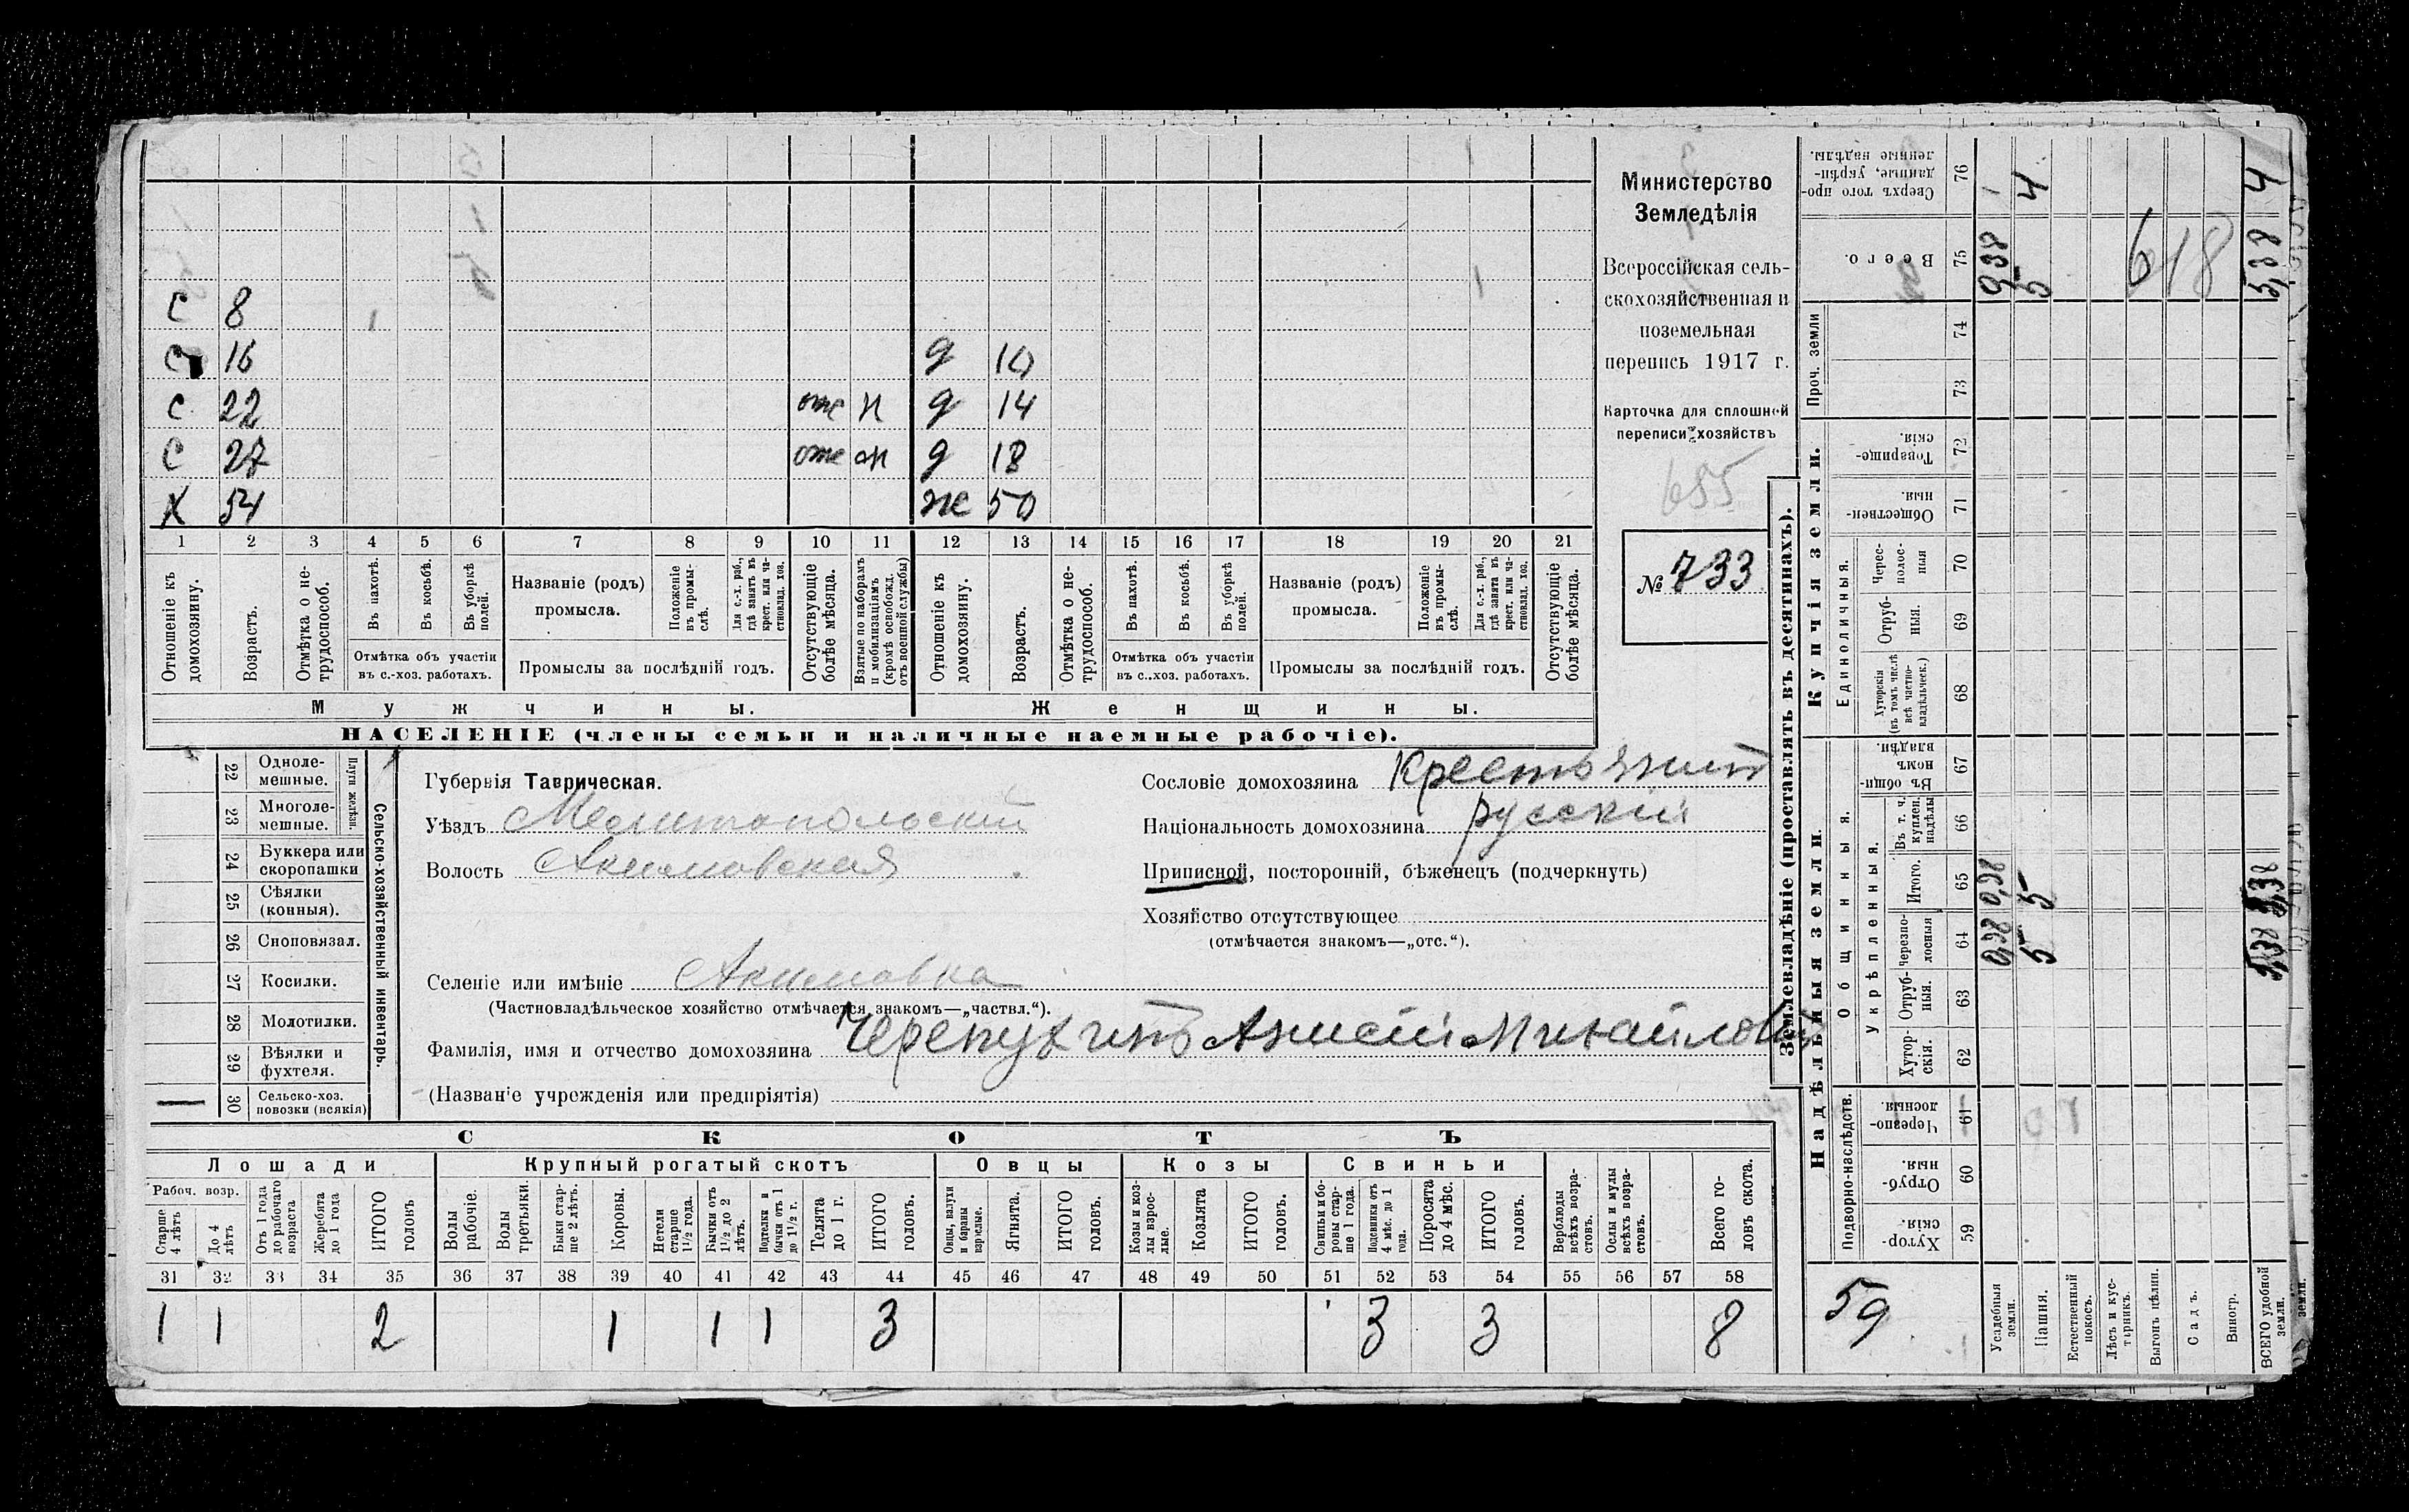 С 8
С 16 д 10
С 22 отс н д 14
С 27 отс н д 18
Х 54 же 50
1 2 3 4 5 6 7 8 9 10 11 12 13 14 15 16 17 18 19 20 21
Отношеніе къ домохозяину.
Возрастъ.
Отмѣтка о нетрудоспособ.
Въ пахотѣ.
Въ косьбѣ.
Въ уборкѣ полей.
Отмѣтка объ участіи
въ с.-хоз. работахъ.
Названіе (родъ)
промысла.
Положеніе въ промыслѣ.
Для с.-х. раб., гдѣ занятъ въ крест. или частновлад. хоз.
Промыслы за послѣдній годъ.
Отсутствующіе болѣе мѣсяца.
Взятые по наборамъ и мобилизаціямъ (кромѣ освобожд. отъ военной службы)
Отношеніе къ домохозяину.
Возрастъ.
Отмѣтка о нетрудоспособ.
Въ пахотѣ.
Въ косьбѣ.
Въ уборкѣ полей.
Отмѣтка объ участіи
въ с.-хоз. работахъ.
Названіе (родъ)
промысла.
Положеніе въ промыслѣ.
Для с.-х. раб., гдѣ занята въ крест. или частновлад. хоз.
Промыслы за послѣдній годъ.
Отсутствующіе болѣе мѣсяца.
Мужчины. Женщины.
НАСЕЛЕНІЕ (члены семьи и наличные наемные рабочіе).
Министерство
Земледѣлія
Всероссійская сель-
скохозяйственная и
поземельная
перепись 1917 г.
Карточка для сплошной
переписи хозяйствъ
655
№ 733
22 Однолемешные.
23 Многолемешные.
Плуги желѣзн.
24 Буккера или скоропашки
25 Сѣялки (конныя).
26 Сноповязал.
27 Косилки.
28 Молотилки.
29 Вѣялки и фухтеля.
30 Сельско-хоз. повозки (всякія)
Сельско-хозяйственный инвентарь.
Губернія Таврическая.
Уѣздъ Мелитопольскій
Волость Акимовская
Селеніе или имѣніе Акимовка
(Частновладѣльческое хозяйство отмѣчается знакомъ—„частвл.“).
Фамилія, имя и отчество домохозяина Черепухинъ Михайловичъ
(Названіе учрежденія или предпріятія)
Сословіе домохозяина Крестьянинъ
Національность домохозяина русскій
Приписной, посторонній, бѣженецъ (подчеркнуть)
Хозяйство отсутствующее
(отмѣчается знакомъ—„отс.“).
СКОТЪ
Лошади Крупный рогатый скотъ Овцы Козы Свиньи
Рабоч. возр.
Старше 4 лѣтъ
До 4 лѣтъ
Отъ 1 года до рабочаго возраста
Жеребята до 1 года
ИТОГО головъ
Волы рабочіе.
Волы третьяки.
Быки старше 2 лѣтъ.
Коровы.
Нетели старше 1½ года.
Бычки отъ 1½ до 2 лѣтъ.
Подтелки и бычки отъ 1 до 1½ г.
Телята до 1 г.
ИТОГО головъ.
Овцы, валухи и бараны взрослые.
Ягнята.
ИТОГО головъ.
Козы и козлы взрослые.
Козлята
ИТОГО головъ.
Свиньи и боровы старше 1 года.
Подсвинки отъ 4 мѣс. до 1 года.
Поросята до 4 мѣс.
ИТОГО головъ.
Верблюды всѣхъ возрастовъ.
Ослы и мулы всѣхъ возрастовъ.
Всего головъ скота.
31 32 33 34 35 36 37 38 39 40 41 42 43 44 45 46 47 48 49 50 51 52 53 54 55 56 57 58
1 1 2 1 1 1 3 3 3 8
Землевладѣніе (проставлять въ десятинахъ).
Надѣльныя земли. Купчія земли. Проч. земли
Подворно-наслѣдств. Общинныя. Единоличныя.
Укрѣпленныя.
Хуторскія. 59
Отрубныя. 60
Черезполосныя. 61
Хуторскія. 62
Отрубныя. 63
Черезполосныя 64
Итого. 65
Въ т. ч. куплен. надѣлы 66
Въ общинномъ владѣн. 67
Хуторскія (въ томъ числѣ всѣ частновладѣльческ.) 68
Отрубныя. 69
Чересполосныя 70
Общественныя. 71
Товарищескія. 72
73
74
Всего. 75
Сверхъ того проданные, укрѣпленные надѣлы. 76
59
Усадебныя земли. 0,38 0,38
Пашня. 5 5 5 4
Естественный покосъ.
Лѣсъ и кустарникъ.
Выгонъ цѣлин.
Садъ.
Виногр.
ВСЕГО удобной земли. 5,38 5,38 5,38 4
618